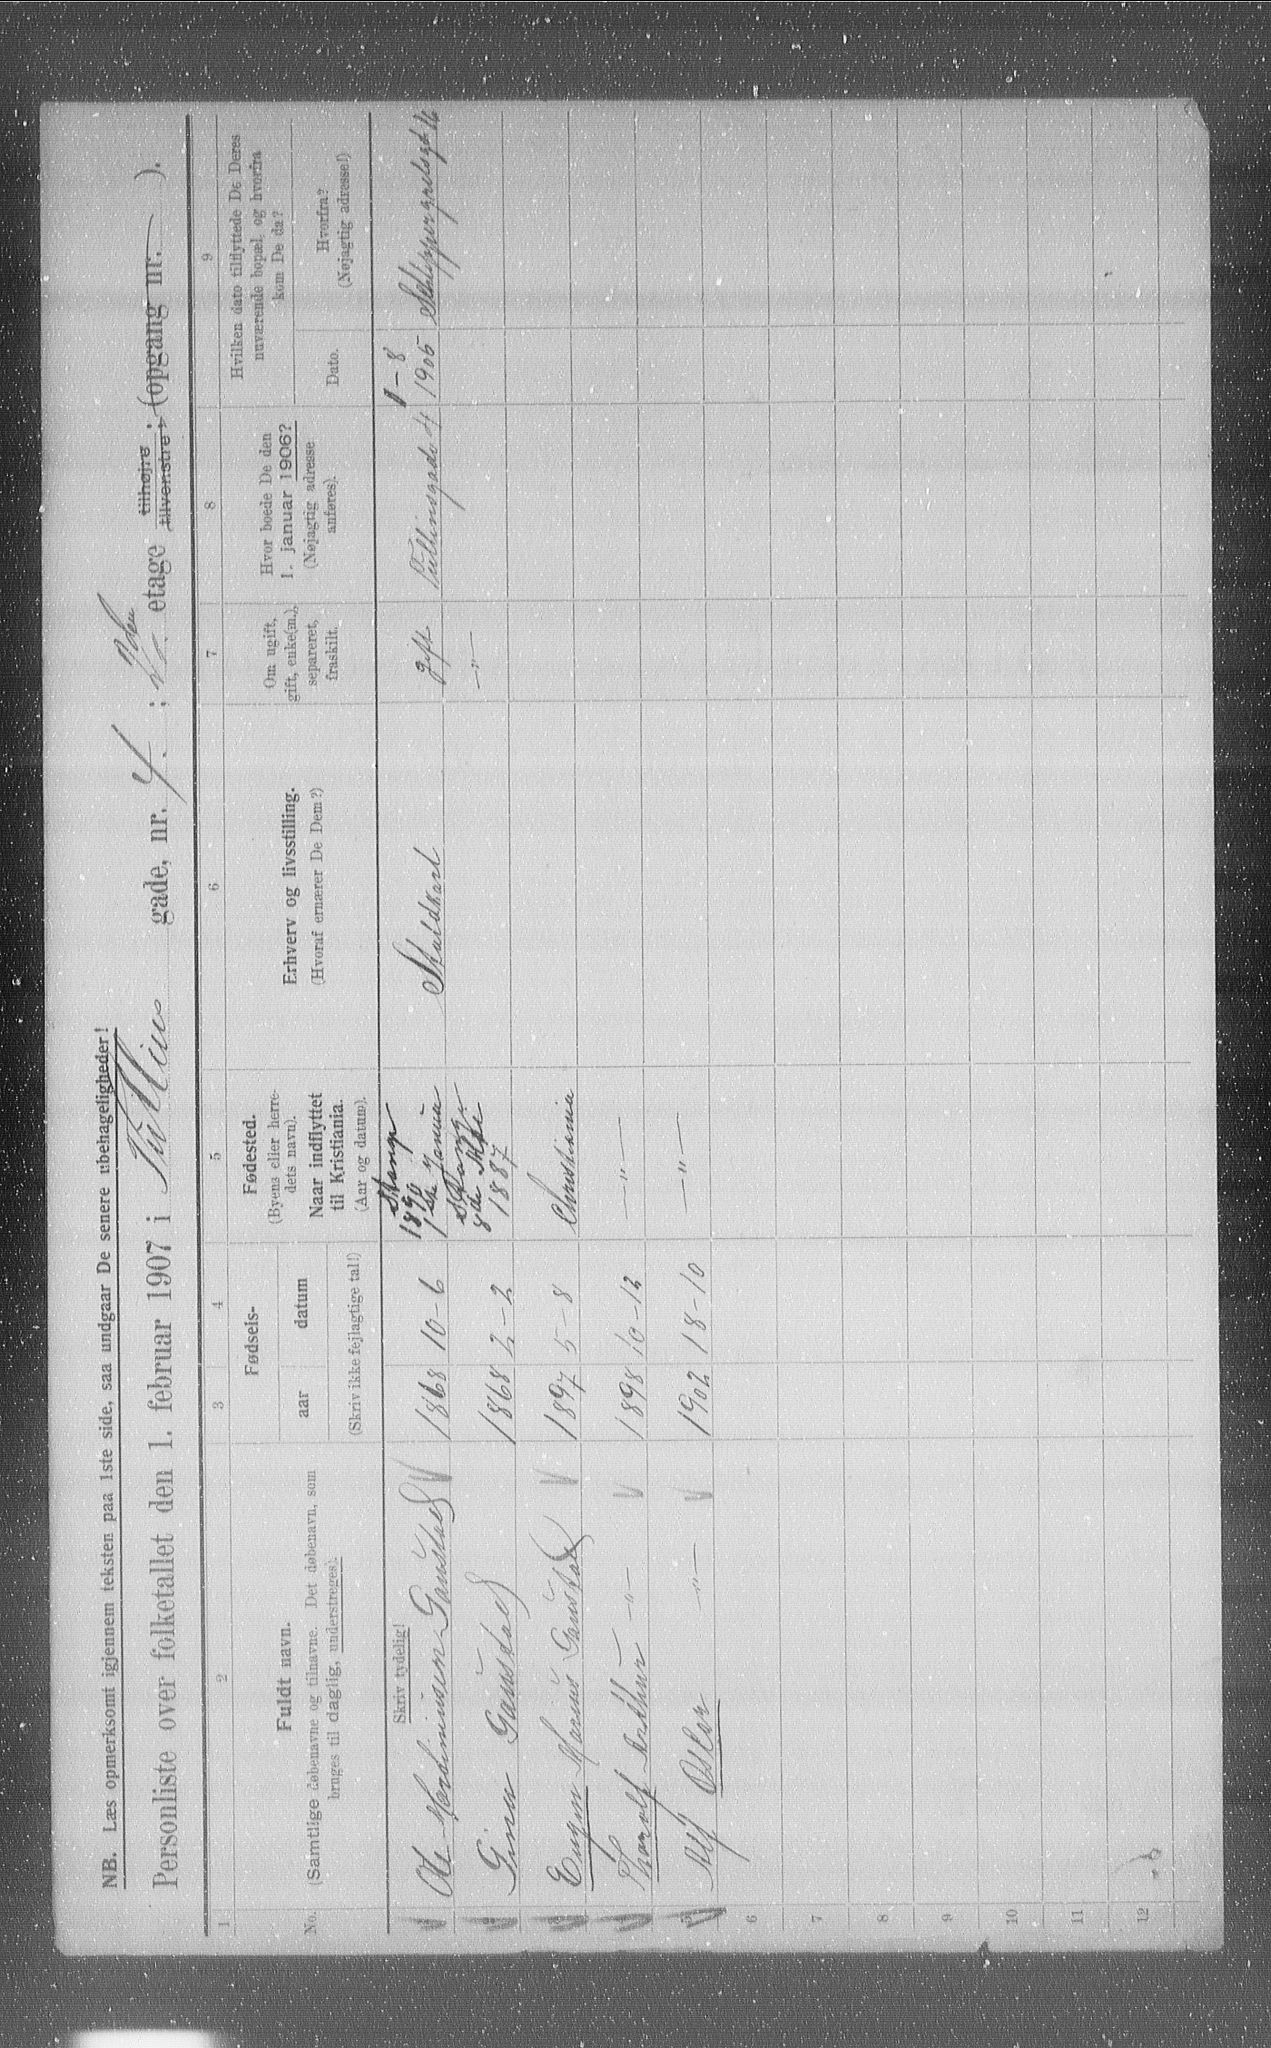 NB. Læs opmerksomt igjennem teksten paa 1ste side, saa undgaar De senere ubehageligheder!
Personliste over folketallet den 1. februar 1907 i Tullins gade, nr. 4. ; 2den etage tilhøjre tilvenstre ; (opgang nr. — ).
1 2 3 4 5 6 7 8 9
No.
Fuldt navn.
(Samtlige døbenavne og tilnavne. Det døbenavn, som
bruges til daglig, understreges).
Fødsels-
aar datum
(Skriv ikke fejlagtige tal!)
Fødested.
(Byens eller herre-
dets navn).
Naar indflyttet
til Kristiania.
(Aar og datum).
Erhverv og livsstilling.
(Hvoraf ernærer De Dem?)
Om ugift,
gift, enke(m.),
separeret,
fraskilt.
Hvor boede De den
1. januar 1906?
(Nøjagtig adresse
anføres).
Hvilken dato tilflyttede De Deres
nuværende bopæl, og hvorfra
kom De da?
Dato.
Hvorfra?
(Nøjagtig adresse!)
Skriv tydelig!
Ole 1868 10-6 Stange 1890 1ste Staldkarl gift Tullinsgade 4 1-8 1905 16
Gina 1868 2-2 Stange 8de 1887 —"—
Eugen Marius 1897 5-8 Christiania
Thoralf Arthur —"— 1898 10-12 —"—
Alf Oskar —"— 1902 18-10 —"—
6
7
8
9
10
11
12